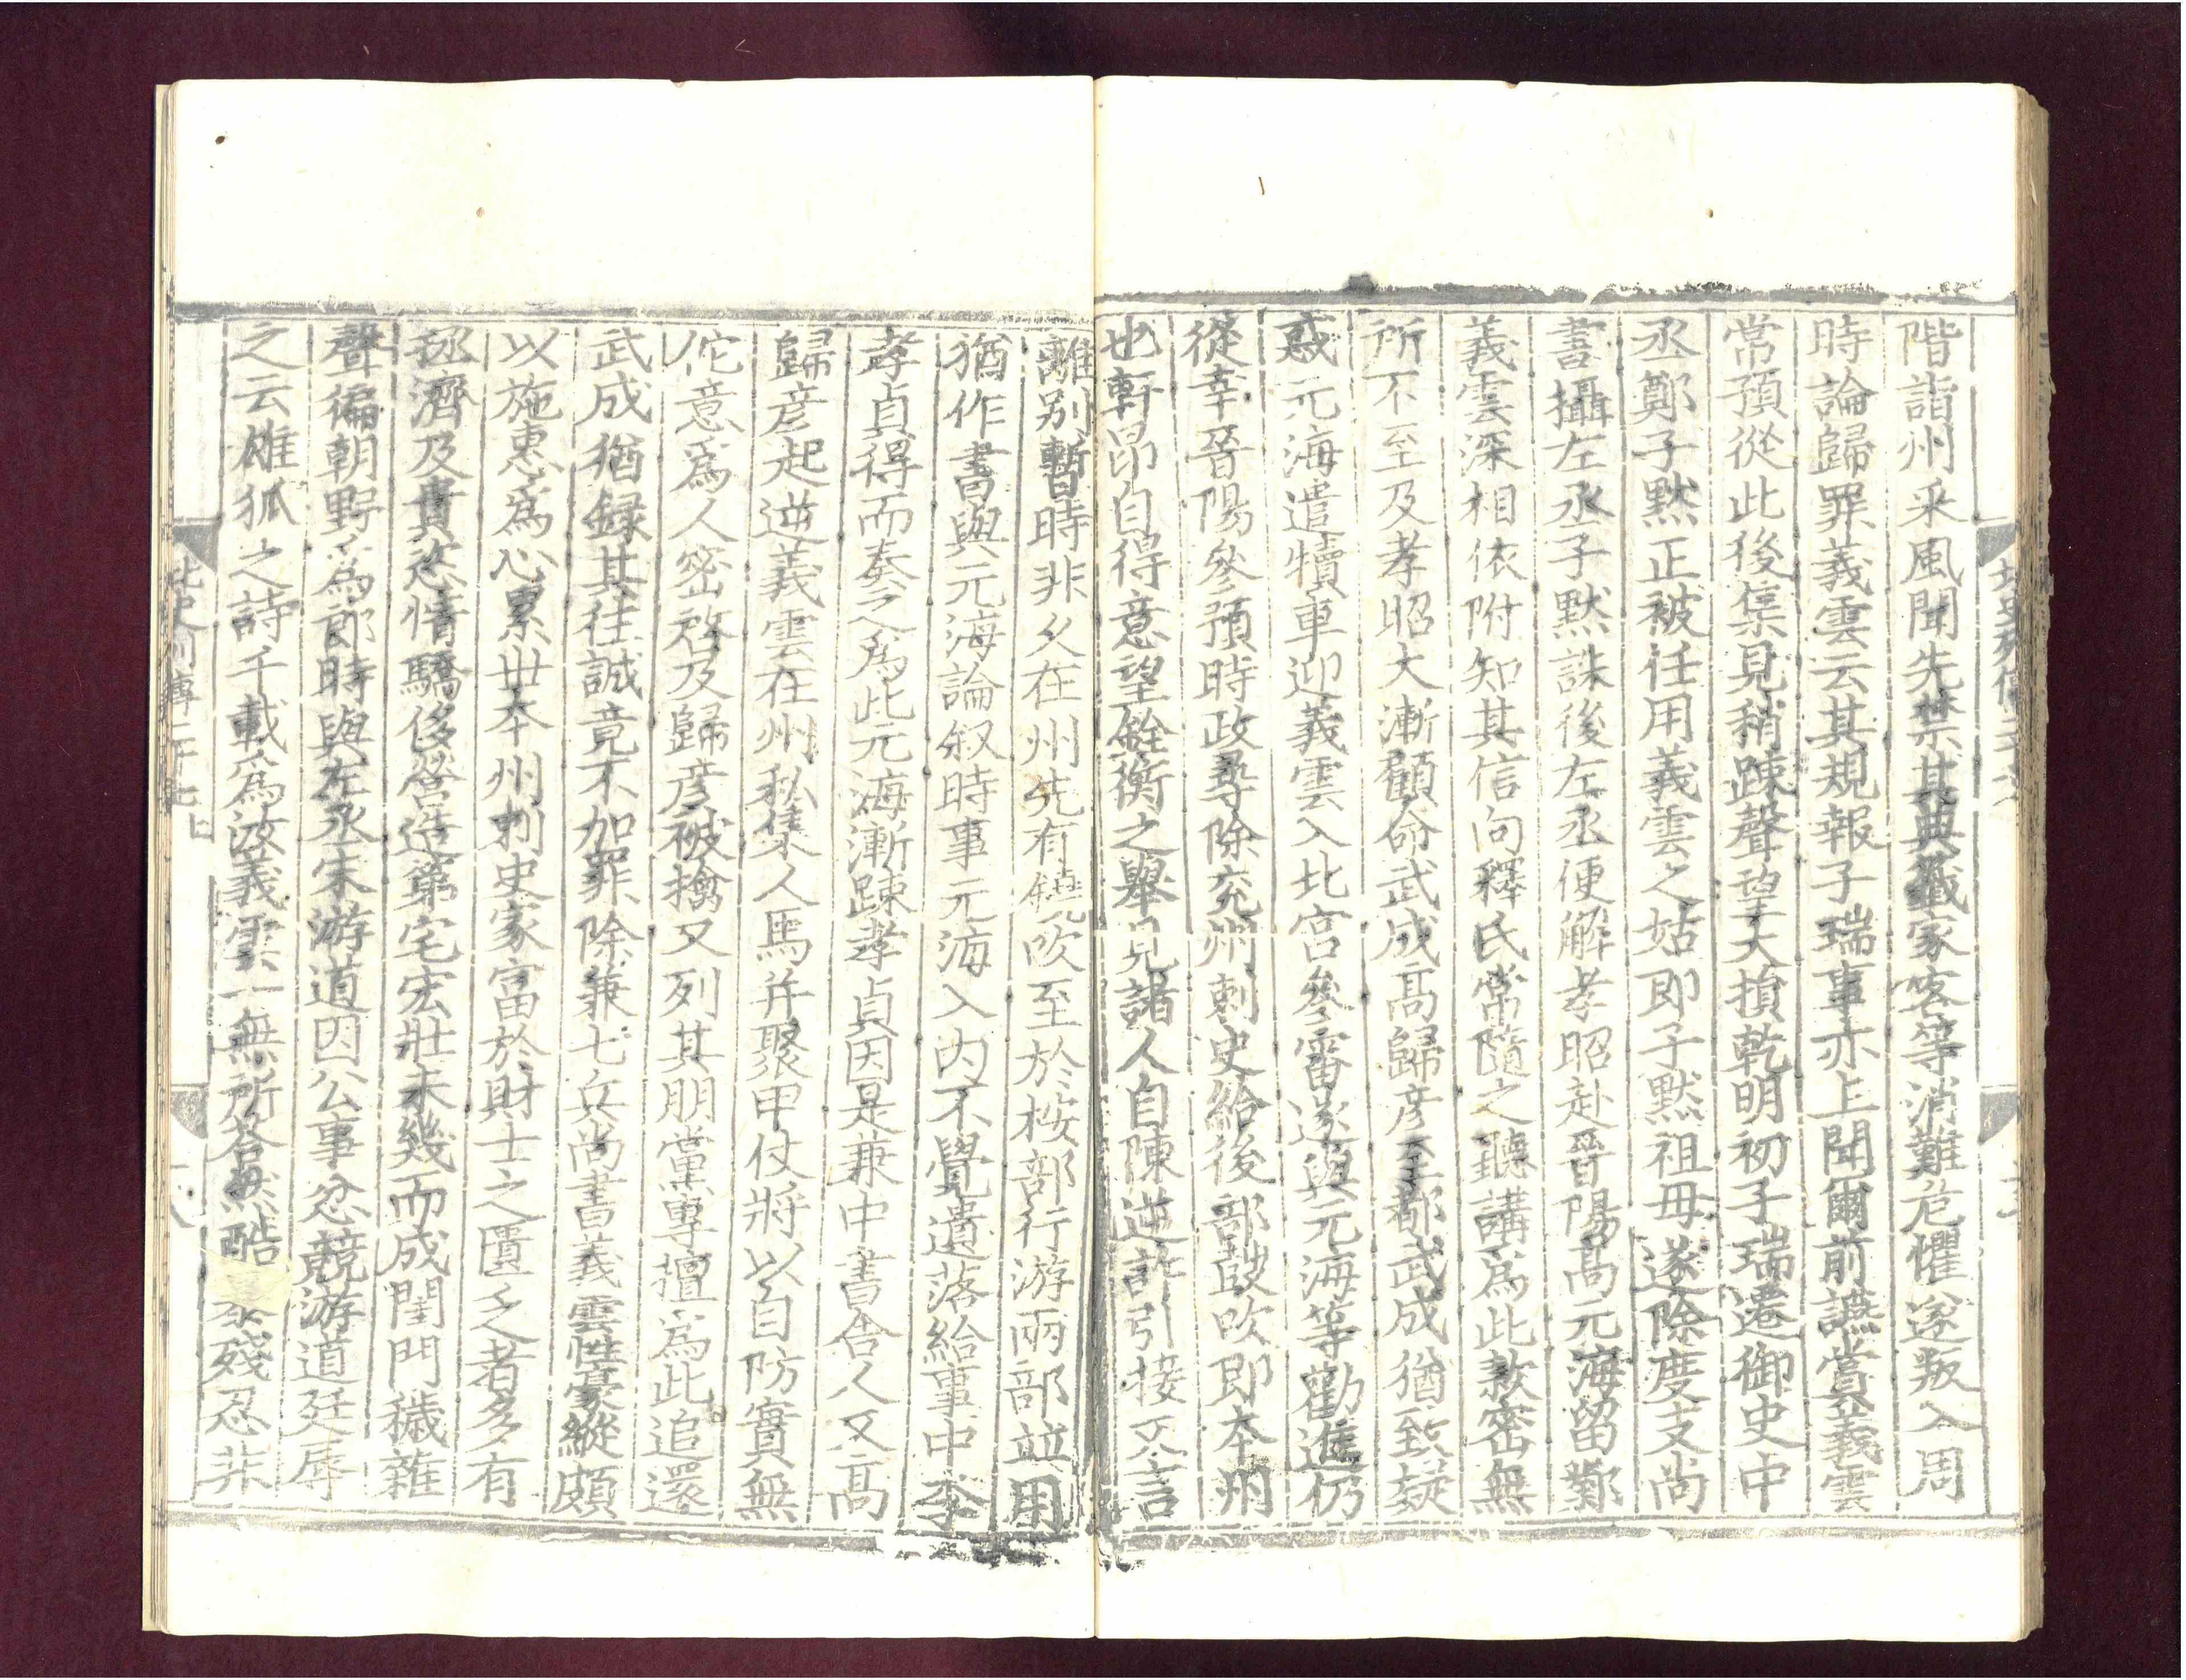 階詣州采風聞先禁其典籖家客等消難危懼遂叛入周
時論歸罪義雲云其規報子瑞事亦上聞爾前讌賞義雲
常預從此後集見稍踈聲望大損乾明初子瑞遷御史中
丞鄭子黙正被任用義雲之姑即子黙祖母遂除度支尚
書攝左丞子黙誅後左丞便解孝昭赴晉陽高元海留鄴
義雲深相依附知其信向釋氏常隨之聽講爲此款密無
所不至及孝昭大漸顧命武成高歸彦至都武成猶致疑
惑元海遣犢車迎義雲入北宫參審遂與元海等勸進仍
從幸晉陽參預時政尋除兖州刺史給後部鼓吹即本州
也軒昂自得意望銓衡之舉見諸人自陳逆許引接又言
離别暫時非久在州先有鐃吹至於桉部行游兩部竝用
猶作書與元海論叙時事元海入内不覺遺落給事中李
孝貞得而奏之爲此元海漸踈孝貞因是兼中書舍人又高
歸彦起逆義雲在州私集人馬并聚甲仗將以自防實無
佗意爲人密啓及歸彦被擒又列其朋黨專擅爲此追還
武成猶録其往誠竟不加罪除兼七兵尚書義雲性豪縱頗
以施惠爲心累丗本州刺史家富於財士之匱乏者多有
拯濟及貴恣情驕侈營造第宅宏壯未幾而成閨門穢雜
聲徧朝野爲郎時與左丞宋游道因公事忿競游道廷辱
之云雄狐之詩千載爲汝義雲一無所荅然酷殘忍非
北史列傳二十七
十八